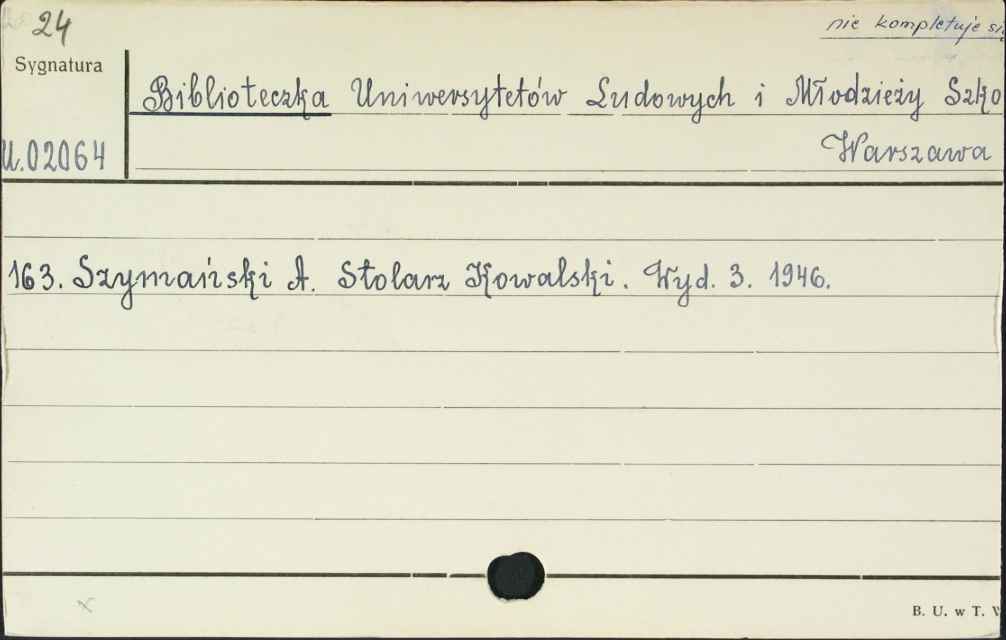 24
nie kompletuje si
Sygnatura
Biblioteczka Uniwersytetów Ludowych i Młodzieży Szko
U.02064
Warszawa
163. Szymański A. Stolarz Kowalski. Wyd. 3. 1946.
x
B. U. w T.